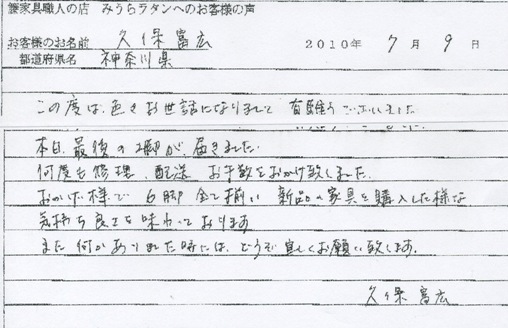 籐家具職人の店 みうらラタンへのお客様の声
お客様のお名前 久保富広 2010年 7月 9日
都道府県名 神奈川県
この度は、色々お世話になりまして 有難うございました
本日 最後の2脚が届きました.
何度も修理、配送 お手数をおかけ致しました.
おかげ様で 6脚 全て揃い 新品の家具を購入した様な
気持ち良さを味わっております
また何かありました時には、どうぞ宜しくお願い致します.
久保富広